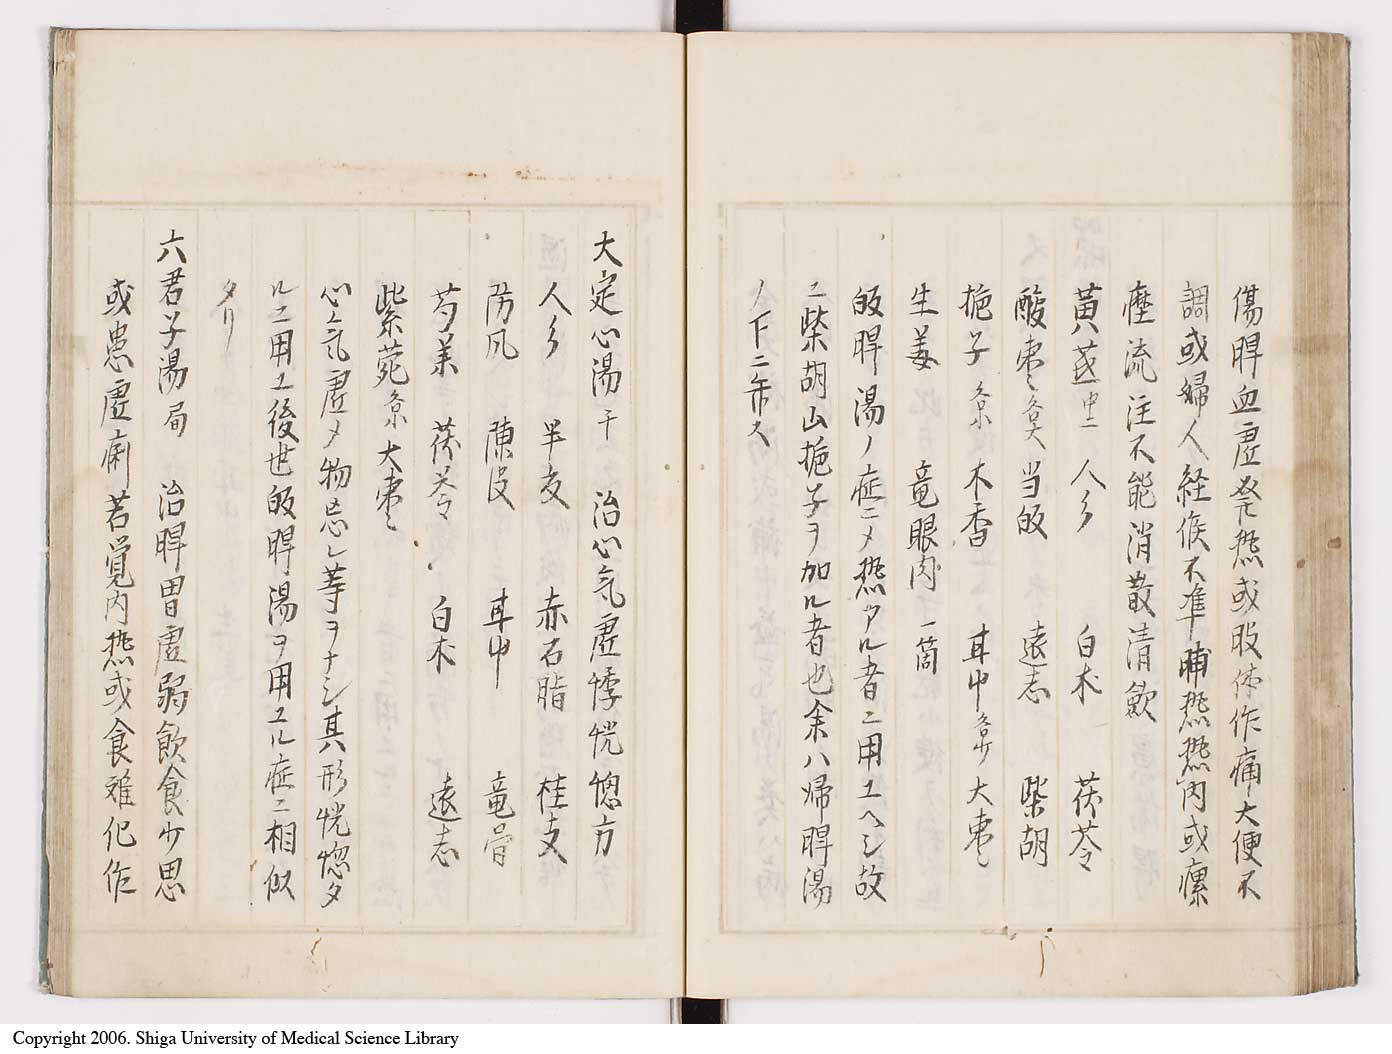 傷脾血虚発熱或肢体作痛大便不
調或婦人経候不準晡熱熱内或瘰
癧流注不能消散清歛
黄芪中二 人参 白朮 茯苓
酸棗各大 当皈 遠志 柴胡
梔子各原 木香 甘中各少 大棗
生姜 竜眼肉一箇
皈脾湯ノ症ニメ熱アル者ニ用エヘシ故
ニ柴胡山梔子ヲ加ル者也余ハ帰脾湯
ノ下ニ
大定心湯千 治心気虚悸恍惚方
人参 半夏 赤石脂 桂支
防風 陳皮 甘中 竜骨
芍薬 茯苓 白朮 遠志
紫菀各原 大棗
心ノ気虚メ物忘レ等ヲナシ其形恍惚タ
ルニ用エ後世皈脾湯ヲ用エル症ニ相似
タリ
六君子湯局 治脾胃虚弱飲食少思
或患虚痢若覚内熱或食難化作
Copyright 2006. Shiga University of Medical Science Library